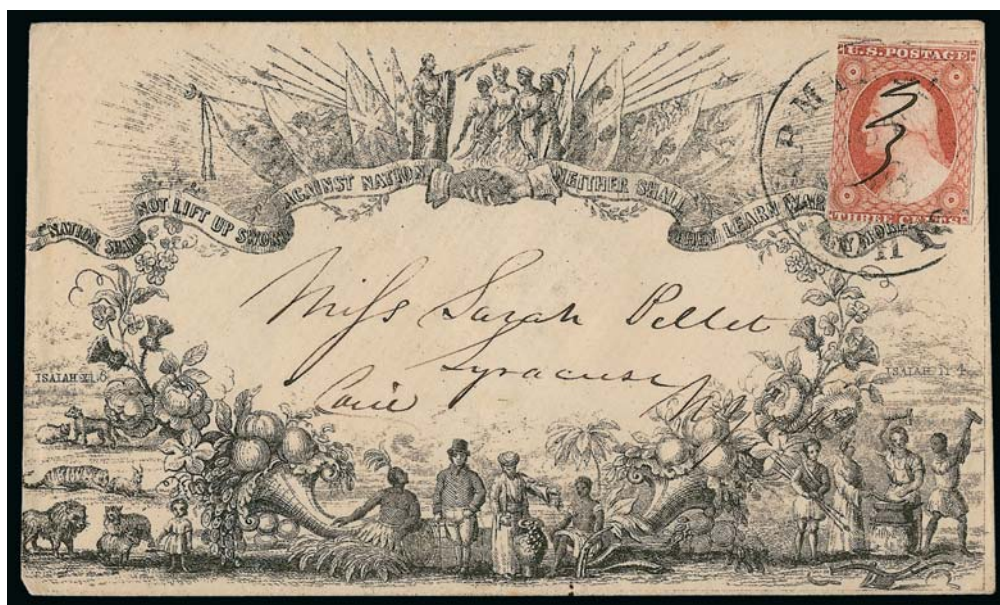 U.S. POSTAGE
THREE CENTS
NATION SHALL NOT LIFT UP SWORD AGAINST NATION NEITHER SHALL THEY LEARN WAR ANY MORE
Miss Sarah Pellet
Syracuse
ISAIAH XI.6.
ISAIAH II.4.